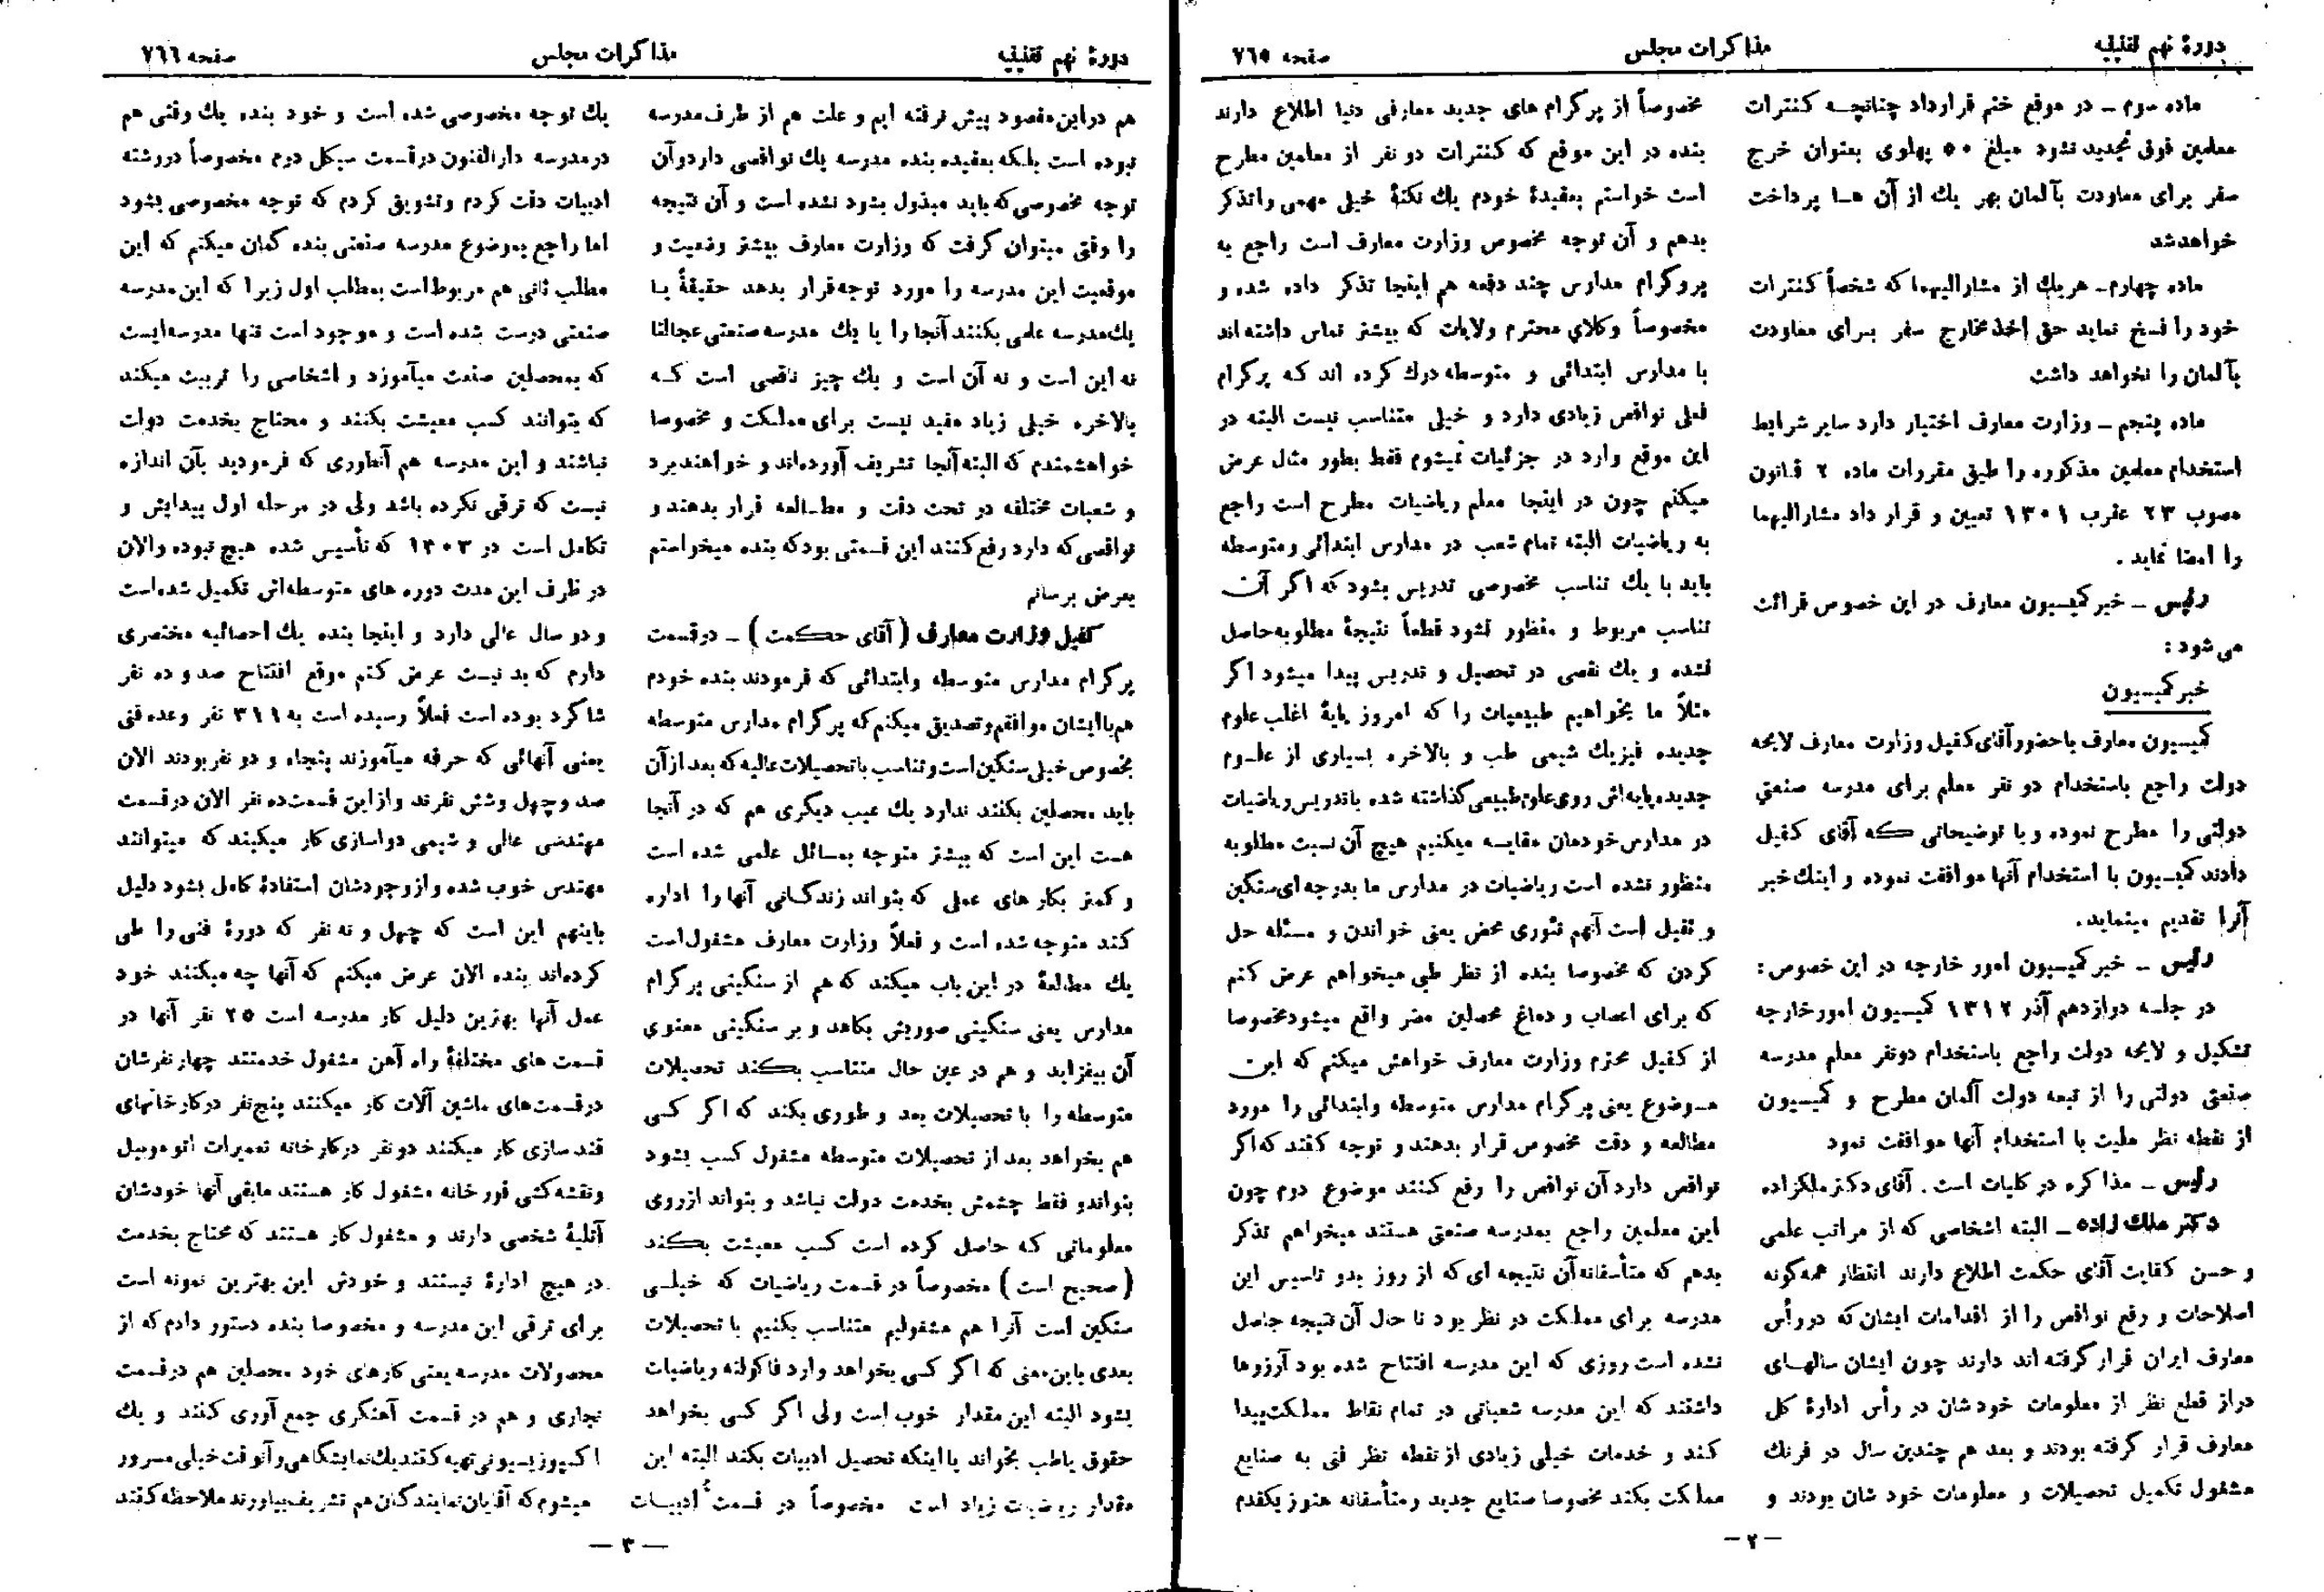 دورهٔ نهم تقنینیه
مذاکرات مجلس
صفحه ۷۶۵
ماده سوم ـ در موقع ختم قرارداد چنانچه کنترات
معلمین فوق تجدید نشود مبلغ ۵۰ پهلوی بعنوان خرج
سفر برای معاودت بآلمان بهر یك از آن هـا پرداخت
خواهدشد
ماده چهارم ـ هریك از مشارالیهما که شخصاً کنترات
خود را فسخ نماید حق اخذ مخارج سفر بـرای معاودت
بآلمان را نخواهد داشت
ماده پنجم ـ وزارت معارف اختیار دارد سایر شرایط
استخدام معلمین مذکوره را طبق مقررات ماده ۲ قانون
مصوب ۲۳ عقرب ۱۳۰۱ تعیین و قرار داد مشارالیهما
را امضا نماید .
رئیس ـ خبر کمیسیون معارف در این خصوص قرائت
می شود :
خبر کمیسیون
کمیسیون معارف باحضور آقای کفیل وزارت معارف لایحه
دولت راجع باستخدام دو نفر معلم برای مدرسه صنعتی
دولتی را مطرح نموده و با توضیحاتی کـه آقای کفیل
دادند کمیسیون با استخدام آنها موافقت نموده و اینك خبر
آنرا تقدیم مینماید.
رئیس ـ خبر کمیسیون امور خارجه در این خصوص :
در جلسه دوازدهم آذر ۱۳۱۲ کمیسیون امورخارجه
تشکیل و لایحه دولت راجع باستخدام دونفر معلم مدرسه
صنعتی دولتی را از تبعه دولت آلمان مطرح و کمیسیون
از نقطه نظر ملیت با استخدام آنها موافقت نمود
رئیس ـ مذاکره در کلیات است . آقای دکتر ملکزاده
دکتر ملك زاده ـ البته اشخاصی که از مراتب علمی
و حسن کفایت آقای حکمت اطلاع دارند انتظار همه گونه
اصلاحات و رفع نواقص را از اقدامات ایشان که در رأس
معارف ایران قرار گرفته اند دارند چون ایشان سالهـای
دراز قطع نظر از معلومات خودشان در رأس ادارهٔ کل
معارف قرار گرفته بودند و بعد هم چندین سال در فرنك
مشغول تکمیل تحصیلات و معلومات خود شان بودند و
مخصوصاً از پرگرام های جدید معارفی دنیا اطلاع دارند
بنده در این موقع که کنترات دو نفر از معلمین مطرح
است خواستم بعقیدهٔ خودم یك نکتهٔ خیلی مهمی را تذکر
بدهم و آن توجه مخصوص وزارت معارف است راجع به
پروگرام مدارس چند دفعه هم اینجا تذکر داده شده و
مخصوصاً وکلای محترم ولایات که بیشتر تماس داشته اند
با مدارس ابتدائی و متوسطه درك کرده اند کـه پرگرام
فعلی نواقص زیادی دارد و خیلی متناسب نیست البته در
این موقع وارد در جزئیات نمیشوم فقط بطور مثال عرض
میکنم چون در اینجا معلم ریاضیات مطرح است راجع
به ریاضیات البته تمام شعب در مدارس ابتدائی ومتوسطه
باید با یك تناسب مخصوصی تدریس بشود که اگر آن
تناسب مربوط و منظور نشود قطعاً نتیجهٔ مطلوبه حاصل
نشده و یك نقصی در تحصیل و تدریس پیدا میشود اگر
مثلاً ما بخواهیم طبیعیات را که امروز پایهٔ اغلب علوم
جدیده فیزیك شیمی طب و بالاخره بسیاری از علـوم
جدیده پایه اش روی علوم طبیعی گذاشته شده باتدریس ریاضیات
در مدارس خودمان مقایسه میکنیم هیچ آن نسبت مطلوبه
منظور نشده است ریاضیات در مدارس ما بدرجه ای سنگین
و ثقیل است آنهم تئوری محض یعنی خواندن و مسئله حل
کردن که مخصوصا بنده از نظر طبی میخواهم عرض کنم
که برای اعصاب و دماغ محصلین مضر واقع میشود مخصوصا
از کفیل محترم وزارت معارف خواهش میکنم که این
مـوضوع یعنی پرگرام مدارس متوسطه وابتدائی را مورد
مطالعه و دقت مخصوص قرار بدهند و توجه کنند که اگر
نواقص دارد آن نواقص را رفع کنند موضوع دوم چون
این معلمین راجع بمدرسه صنعتی هستند میخواهم تذکر
بدهم که متأسفانه آن نتیجه ای که از روز بدو تاسیس این
مدرسه برای مملکت در نظر بود تا حال آن نتیجه حاصل
نشده است روزی که این مدرسه افتتاح شده بود آرزوها
داشتند که این مدرسه شعباتی در تمام نقاط مملکت پیدا
کند و خدمات خیلی زیادی از نقطه نظر فنی به صنایع
مملکت بکند مخصوصا صنایع جدید ومتأسفانه هنوز یکقدم
ـ ۲ ـ
دورهٔ نهم تقنینیه
مذاکرات مجلس
صفحه ۷۶۶
هم دراین مقصود پیش نرفته ایم و علت هم از طرف مدرسه
نبوده است بلکه بعقیده بنده مدرسه یك نواقصی دارد و آن
توجه مخصوصی که باید مبذول بشود نشده است و آن نتیجه
را وقتی میتوان گرفت که وزارت معارف بیشتر وضعیت و
موقعیت این مدرسه را مورد توجه قرار بدهد حقیقةً یـا
یك مدرسه علمی بکنند آنجا را یا یك مدرسه صنعتی عجالتا
نه این است و نه آن است و یك چیز ناقصی است کـه
بالاخره خیلی زیاد مفید نیست برای مملکت و مخصوصا
خواهشمندم که البته آنجا تشریف آورده‌اند و خواهند برد
و شعبات مختلفه در تحت دقت و مطـالعه قرار بدهند و
نواقصی که دارد رفع کنند این قسمتی بود که بنده میخواستم
بعرض برسانم
کفیل وزارت معارف ( آقای حکمت ) ـ درقسمت
پرگرام مدارس متوسطه وابتدائی که فرمودند بنده خودم
هم باایشان موافقم و تصدیق میکنم که پرگرام مدارس متوسطه
بخصوص خیلی سنگین است و تناسب باتحصیلات عالیه که بعد از آن
باید محصلین بکنند ندارد یك عیب دیگری هم که در آنجا
هست این است که بیشتر متوجه بمسائل علمی شده است
و کمتر بکار های عملی که بتواند زندگـانی آنها را اداره
کند متوجه شده است و فعلاً وزارت معارف مشغول است
یك مطالعهٔ در این باب میکند که هم از سنگینی پرگرام
مدارس یعنی سنگینی صوریش بکاهد و بر سنگینی معنوی
آن بیفزاید و هم در عین حال متناسب بکند تحصیلات
متوسطه را با تحصیلات بعد و طوری بکند که اگر کسی
هم بخواهد بعد از تحصیلات متوسطه مشغول کسب بشود
بتواند و فقط چشمش بخدمت دولت نباشد و بتواند ازروی
معلوماتی کـه حاصل کرده است کسب معیشت بکند
( صحیح است ) مخصوصاً در قسمت ریاضیات که خیلـی
سنگین است آنرا هم مشغولیم متناسب بکنیم با تحصیلات
بعدی باین معنی که اگر کسی بخواهد وارد فاکولته ریاضیات
بشود البته این مقدار خوب است ولی اگر کسی بخواهد
حقوق یاطب بخواند یااینکه تحصیل ادبیات بکند البته این
مقدار ریاضیات زیاد است مخصوصاً در قسمت ادبیـات
یك توجه مخصوصی شده است و خود بنده یك وقتی هم
درمدرسه دارالفنون درقسمت سیکل دوم مخصوصاً دررشته
ادبیات دقت کردم وتشویق کردم که توجه مخصوصی بشود
اما راجع بموضوع مدرسه صنعتی بنده گمان میکنم که این
مطلب ثانی هم مربوط است بمطلب اول زیرا که این مدرسه
صنعتی درست شده است و موجود است تنها مدرسه‌ایست
که بمحصلین صنعت میآموزد و اشخاصی را تربیت میکند
که بتوانند کسب معیشت بکنند و محتاج بخدمت دولت
نباشند و این مدرسه هم آنطوری که فرمودید بآن اندازه
نیست که ترقی نکرده باشد ولی در مرحله اول پیدایش و
تکامل است در ۱۳۰۳ که تأسیس شده هیچ نبوده والان
در ظرف این مدت دوره های متوسطه‌اش تکمیل شده است
و دو سال عالی دارد و اینجا بنده یك احصائیه مختصری
دارم که بد نیست عرض کنم موقع افتتاح صد و ده نفر
شاگرد بوده است فعلاً رسیده است به ۳۱۱ نفر وعده فنی
یعنی آنهائی که حرفه میآموزند پنجاه و دو نفر بودند الان
صد و چهل وشش نفرند و ازاین قسمت ده نفر الان درقسمت
مهندسی عالی و شیمی دواسازی کار میکنند که میتوانند
مهندس خوب شده و از وجودشان استفادهٔ کامل بشود دلیل
باینهم این است که چهل و نه نفر که دورهٔ فنی را طی
کرده‌اند بنده الان عرض میکنم که آنها چه میکنند خود
عمل آنها بهترین دلیل کار مدرسه است ۲۵ نفر آنها در
قسمت های مختلفهٔ راه آهن مشغول خدمتند چهار نفرشان
درقسمت‌های ماشین آلات کار میکنند پنج نفر درکارخانهای
قندسازی کار میکنند دونفر درکارخانه تعمیرات اتوموبیل
ونقشه کشی قورخانه مشغول کار هستند مابقی آنها خودشان
آتلیهٔ شخصی دارند و مشغول کار هستند که محتاج بخدمت
در هیچ ادارهٔ نیستند و خودش این بهترین نمونه است
برای ترقی این مدرسه و مخصوصا بنده دستور دادم که از
محصولات مدرسه یعنی کارهای خود محصلین هم درقسمت
نجاری و هم در قسمت آهنگری جمع آوری کنند و یك
اکسپوزیسیونی تهیه کنند یك نمایشگاهی و آنوقت خیلی مسرور
میشوم که آقایان نمایندگان هم تشریف بیاورند ملاحظه کنند
ـ ۳ ـ